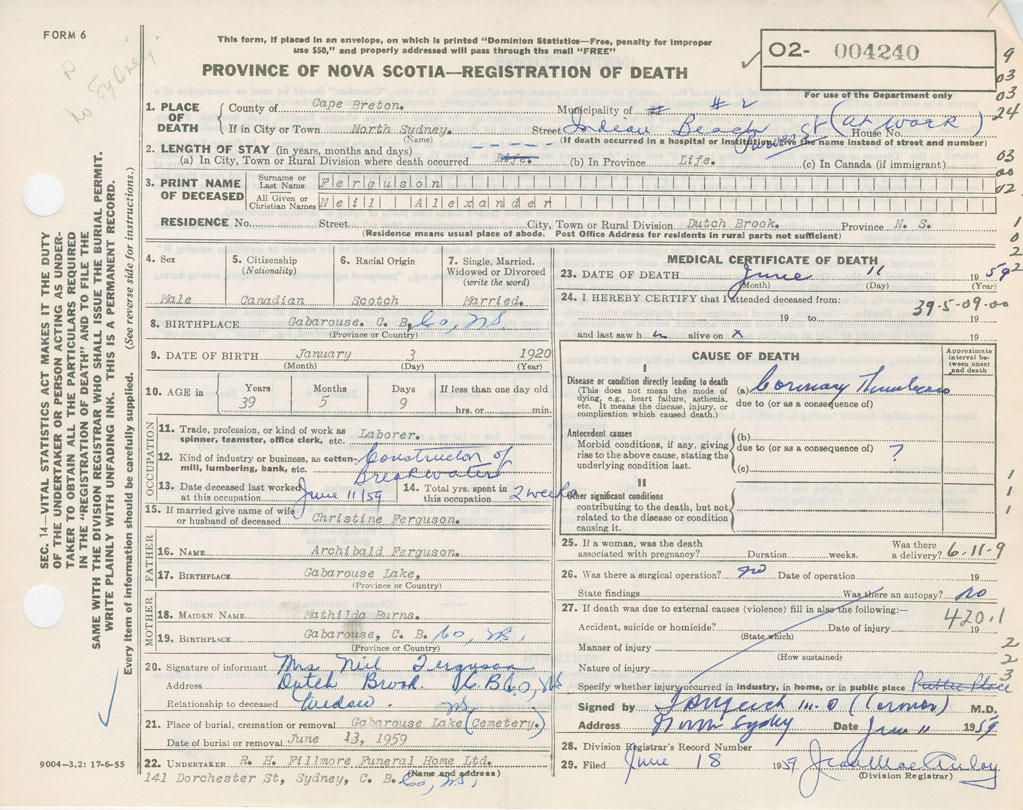 FORM 6
This form, if placed in an envelope, on which is printed "Dominion Statistics—Free, penalty for improper
use $50," and properly addressed will pass through the mail "FREE"
PROVINCE OF NOVA SCOTIA—REGISTRATION OF DEATH
02- 004240
For use of the Department only
9
03
03
24
03
00
02
1
0
2
2
1
1
1
2
2
3
SEC. 14—VITAL STATISTICS ACT MAKES IT THE DUTY
OF THE UNDERTAKER OR PERSON ACTING AS UNDER-
TAKER TO OBTAIN ALL THE PARTICULARS REQUIRED
IN THE "REGISTRATION OF DEATH" AND TO FILE THE
SAME WITH THE DIVISION REGISTRAR WHO SHALL ISSUE THE BURIAL PERMIT.
WRITE PLAINLY WITH UNFADING INK. THIS IS A PERMANENT RECORD.
Every item of information should be carefully supplied. (See reverse side for instructions.)
1. PLACE OF DEATH County of Cape Breton. Municipality of # 2
If in City or Town North Sydney. Street Indian Beach Power St (at work) House No.
(Name) (If death occurred in a hospital or institution, give the name instead of street and number)
2. LENGTH OF STAY (in years, months and days)
(a) In City, Town or Rural Division where death occurred Life. (b) In Province Life. (c) In Canada (if immigrant)
3. PRINT NAME OF DECEASED Surname or Last Name Ferguson
All Given or Christian Names Neil Alexander
RESIDENCE No. Street City, Town or Rural Division Dutch Brook. Province N. S.
(Residence means usual place of abode. Post Office Address for residents in rural parts not sufficient)
4. Sex 5. Citizenship (Nationality) 6. Racial Origin 7. Single, Married, Widowed or Divorced (write the word)
Male Canadian Scotch Married.
8. BIRTHPLACE Gabarouse. C. B. Co, NS
(Province or Country)
9. DATE OF BIRTH January 3 1920
(Month) (Day) (Year)
10. AGE in Years 39 Months 5 Days 9 If less than one day old hrs. or min.
OCCUPATION
11. Trade, profession, or kind of work as spinner, teamster, office clerk, etc. Laborer.
12. Kind of industry or business, as cotton-mill, lumbering, bank, etc. Constructor of Breakwater
13. Date deceased last worked at this occupation June 11/59 14. Total yrs. spent in this occupation 2 weeks
15. If married give name of wife or husband of deceased Christine Ferguson.
FATHER
16. NAME Archibald Ferguson.
17. BIRTHPLACE Gabarouse Lake,
(Province or Country)
MOTHER
18. MAIDEN NAME Mathilda Burns.
19. BIRTHPLACE Gabarouse, C. B. Co, NS,
(Province or Country)
20. Signature of informant Mrs Neil Ferguson
Address Dutch Brook. C.B.Co, NS
Relationship to deceased Widow. NS,
21. Place of burial, cremation or removal Gabarouse Lake (Cemetery.)
Date of burial or removal June 13, 1959
22. UNDERTAKER R. H. Fillmore Funeral Home Ltd.
(Name and address)
141 Dorchester St, Sydney, C. B. Co, NS,
9004-3.2: 17-6-55
MEDICAL CERTIFICATE OF DEATH
23. DATE OF DEATH June 11 1959
(Month) (Day) (Year)
24. I HEREBY CERTIFY that I attended deceased from: 39-5-09-00
19 to 19
and last saw h alive on x 19
CAUSE OF DEATH
Approximate interval between onset and death
I
Disease or condition directly leading to death
(This does not mean the mode of dying, e.g., heart failure, asthenia, etc. It means the disease, injury, or complication which caused death.)
(a) Coronary Thrombosis
due to (or as a consequence of)
Antecedent causes
Morbid conditions, if any, giving rise to the above cause, stating the underlying condition last.
(b)
due to (or as a consequence of) ?
(c)
II
Other significant conditions
contributing to the death, but not related to the disease or condition causing it.
25. If a woman, was the death associated with pregnancy? Duration weeks. Was there a delivery? 6-11-9
26. Was there a surgical operation? no Date of operation 19
State findings Was there an autopsy? no
27. If death was due to external causes (violence) fill in also the following:—
Accident, suicide or homicide? Date of injury 19 420.1
(State which)
Manner of injury
(How sustained)
Nature of injury
Specify whether injury occurred in industry, in home, or in public place Public Place
Signed by M.D. (Coroner) M.D.
Address North Sydney Date June 11 1959
28. Division Registrar's Record Number
29. Filed June 18 1959
(Division Registrar)